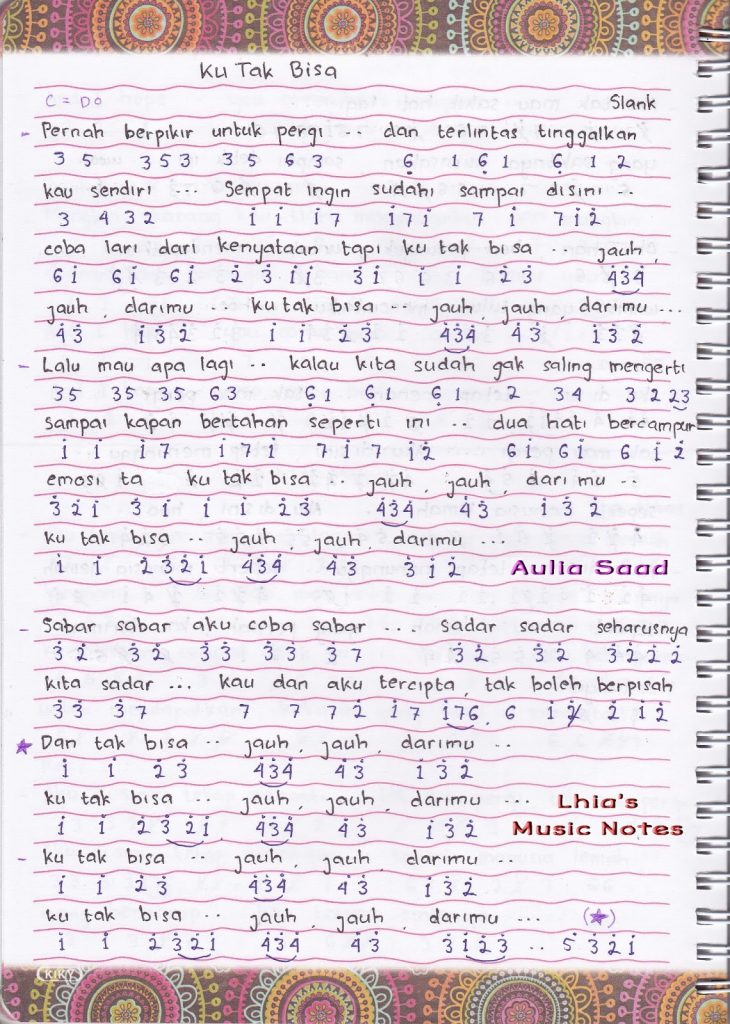 Ku Tak Bisa
C = Do
Slank
- Pernah berpikir untuk pergi .. dan terlintas tinggalkan
3 5 3 5 3 3 5 6 3 6̣ 1 6̣ 1 6̣ 1 2
kau sendiri ... Sempat ingin sudahi sampai disini ..
3 4 3 2 1̇ 1̇ 1̇ 7 1̇ 7 1̇ 7 1̇ 7 1̇ 2̇
coba lari dari kenyataan tapi ku tak bisa jauh,
6 1̇ 6 1̇ 6 1̇ 2̇ 3̇ 1̇ 1̇ 3̇ 1̇ 1̇ 1̇ 2̇ 3̇ 4̇3̇4̇
jauh, darimu ... ku tak bisa .. jauh, jauh darimu ...
4̇ 3̇ 1̇ 3̇ 2̇ 1̇ 1̇ 2̇ 3̇ 4̇3̇4̇ 4̇ 3̇ 1̇ 3̇ 2̇
- Lalu mau apa lagi .. kalau kita sudah gak saling mengerti
3 5 3 5 3 5 6 3 6̣ 1 6̣ 1 6̣ 1 2 3 4 3 2 23
Sampai kapan bertahan seperti ini .. dua hati bercampur
1̇ 1̇ 1̇ 7 1̇ 7 1̇ 7 1̇ 7 1̇ 2̇ 6 1̇ 6 1̇ 6 1̇ 2̇
emosi ta ku tak bisa .. jauh, jauh, dari mu ..
3̇ 2̇ 1̇ 3̇ 1̇ 1̇ 1̇ 2̇ 3̇ 4̇3̇4̇ 4̇ 3̇ 1̇ 3̇ 2̇
ku tak bisa .. jauh, jauh, darimu ...
1̇ 1̇ 2̇ 3̇2̇1̇ 4̇3̇4̇ 4̇ 3̇ 3̇ 1̇ 2̇
Aulia Saad
- Sabar sabar aku coba sabar .... Sadar sadar seharusnya
3̇ 2̇ 3̇ 2̇ 3̇ 3̇ 3̇ 3̇ 3̇ 7 3̇ 2̇ 3̇ 2̇ 3̇ 2̇ 2̇ 2̇
kita sadar ... kau dan aku tercipta, tak boleh berpisah
3̇ 3̇ 3̇ 7 7 7 7 2̇ 1̇ 7 1̇76, 6 1̇ 2̇ 2̇ 1̇ 2̇
★ Dan tak bisa .. jauh, jauh, darimu ..
1̇ 1̇ 2̇ 3̇ 4̇3̇4̇ 4̇ 3̇ 1̇ 3̇ 2̇
ku tak bisa .. jauh, jauh darimu ...
1̇ 1̇ 2̇ 3̇2̇1̇ 4̇3̇4̇ 4̇ 3̇ 1̇ 3̇ 2̇
Lhia's
Music Notes
- ku tak bisa jauh, jauh, darimu
1̇ 1̇ 2̇ 3̇ 4̇3̇4̇ 4̇ 3̇ 1̇ 3̇ 2̇
ku tak bisa .. jauh, jauh, darimu ... (★)
1̇ 1̇ 2̇3̇2̇1̇ 4̇3̇4̇ 4̇ 3̇ 3̇ 1̇2̇3̇ .. 5̇ 3̇ 2̇ 1̇
KIKY